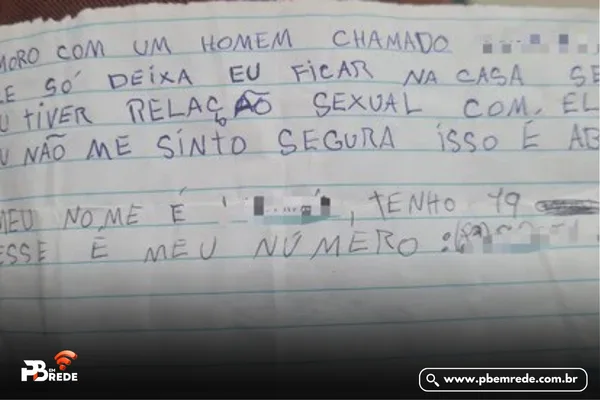 MORO COM UM HOMEM CHAMADO
LE SÓ DEIXA EU FICAR NA CASA SE
U TIVER RELAÇÃO SEXUAL COM. EL
U NÃO ME SINTO SEGURA ISSO É AB
MEU NOME É, TENHO 19
ESSE É MEU NÚMERO:
PB EM REDE
www.pbemrede.com.br